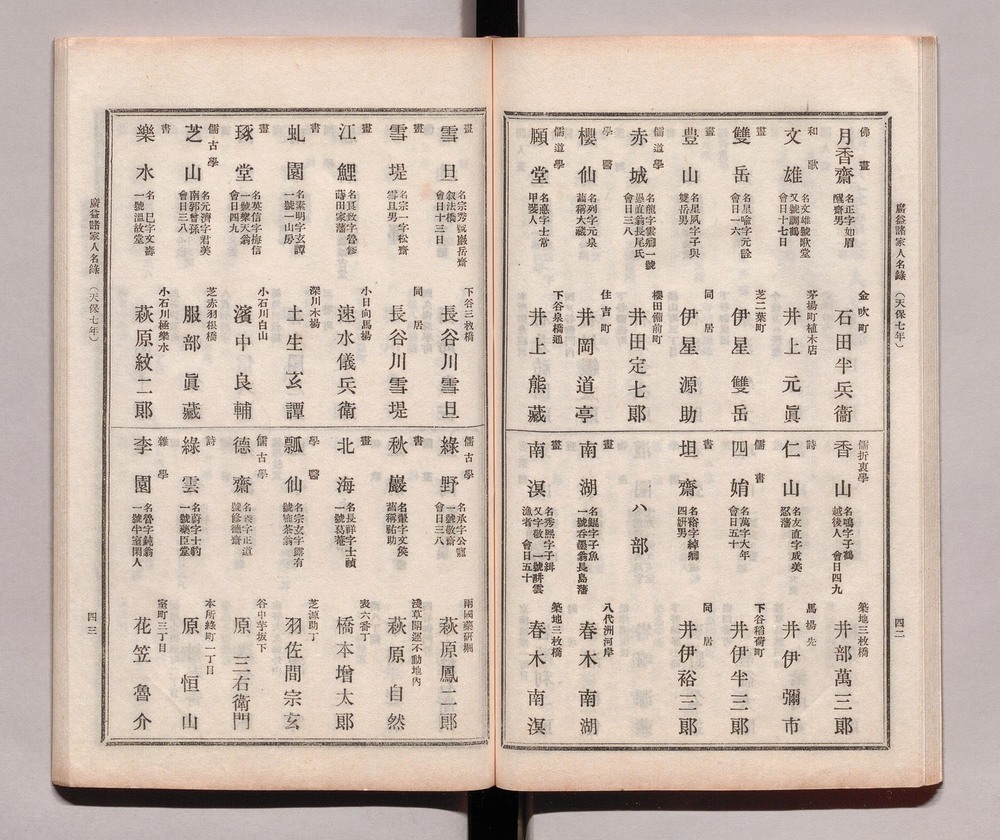 廣益諸家人名錄 (天保七年)
四二
佛畫
月香齋
名正字如眉
醒齋男
金吹町
石田半兵衞
和歌
文雄
名文雄號歌堂
又號調鶴
會日十七日
茅場町植木店
井上元眞
畫
雙岳
名星喩字元詮
會日一六
芝二葉町
伊星雙岳
畫
豊山
名星夙字子與
雙岳男
同居
伊星源助
儒道學
赤城
愚直翁長尾氏
會日三八
櫻田備前町
井田定七郎
學醫
櫻仙
名列字元泉
舊稱大藏
住吉町
井岡道亭
儒道學
願堂
名惪字士常
甲斐人
下谷泉橋通
井上熊藏
儒折衷學
香山
名鳴字子鶴
越後人 會日四九
築地三枚橋
井部萬三郎
詩
仁山
名友直字成美
忍藩
馬場先
井伊彌市
儒書
四娋
名萬字大年
會日五十
下谷稻荷町
井伊半三郎
書
坦齋
名裕字綽卿
四娋男
同居
井伊裕三郎
ハ部
畫
南湖
名鯤字子魚
一號呑墨翁長島藩
八代洲河岸
春木南湖
畫
南溟
名秀熙字子緝
又字敬一號畊雲
漁者 會日五十
築地三枚橋
春木南溟
畫
雪旦
名宗秀號巖岳齋
叙法橋
會日十三日
下谷三枚橋
長谷川雪旦
畫
雪堤
名宗一字松齋
雪旦男
同居
長谷川雪堤
畫
江鯉
蒔田家藩
小日向馬場
速水儀兵衞
書
虬園
名素明字玄譚
一號一山房
深川木場
土生玄譚
畫
琢堂
名英信字梅信
一號樂天翁
會日四九
小石川白山
濱中良輔
儒古學
芝山
名元濟字君美
南郭曾孫
會日三八
芝赤羽根橋
服部眞藏
書
樂水
名巳字文壽
一號溫故堂
小石川極樂水
萩原紋二郎
儒古學
綠野
名承字公寵
一號敬齋
會日三八
兩國藥研堀
萩原鳳二郎
書
秋巖
名翬字文侯
舊稱祐助
淺草開運不動地內
萩原自然
畫
北海
名長祥字士禎
一號葛菴
表六番丁
橋本增太郎
學醫
瓢仙
芝源助丁
羽佐間宗玄
儒古學
德齋
號修德齋
谷中芋坂下
原三右衛門
詩
綠雲
名蔚字士豹
一號藥臣堂
本所綠町一丁目
原恒山
雜學
李園
名魯字鈍翁
一號半室閑人
室町三丁目
花笠魯介
廣益諸家人名錄 (天保七年)
四三